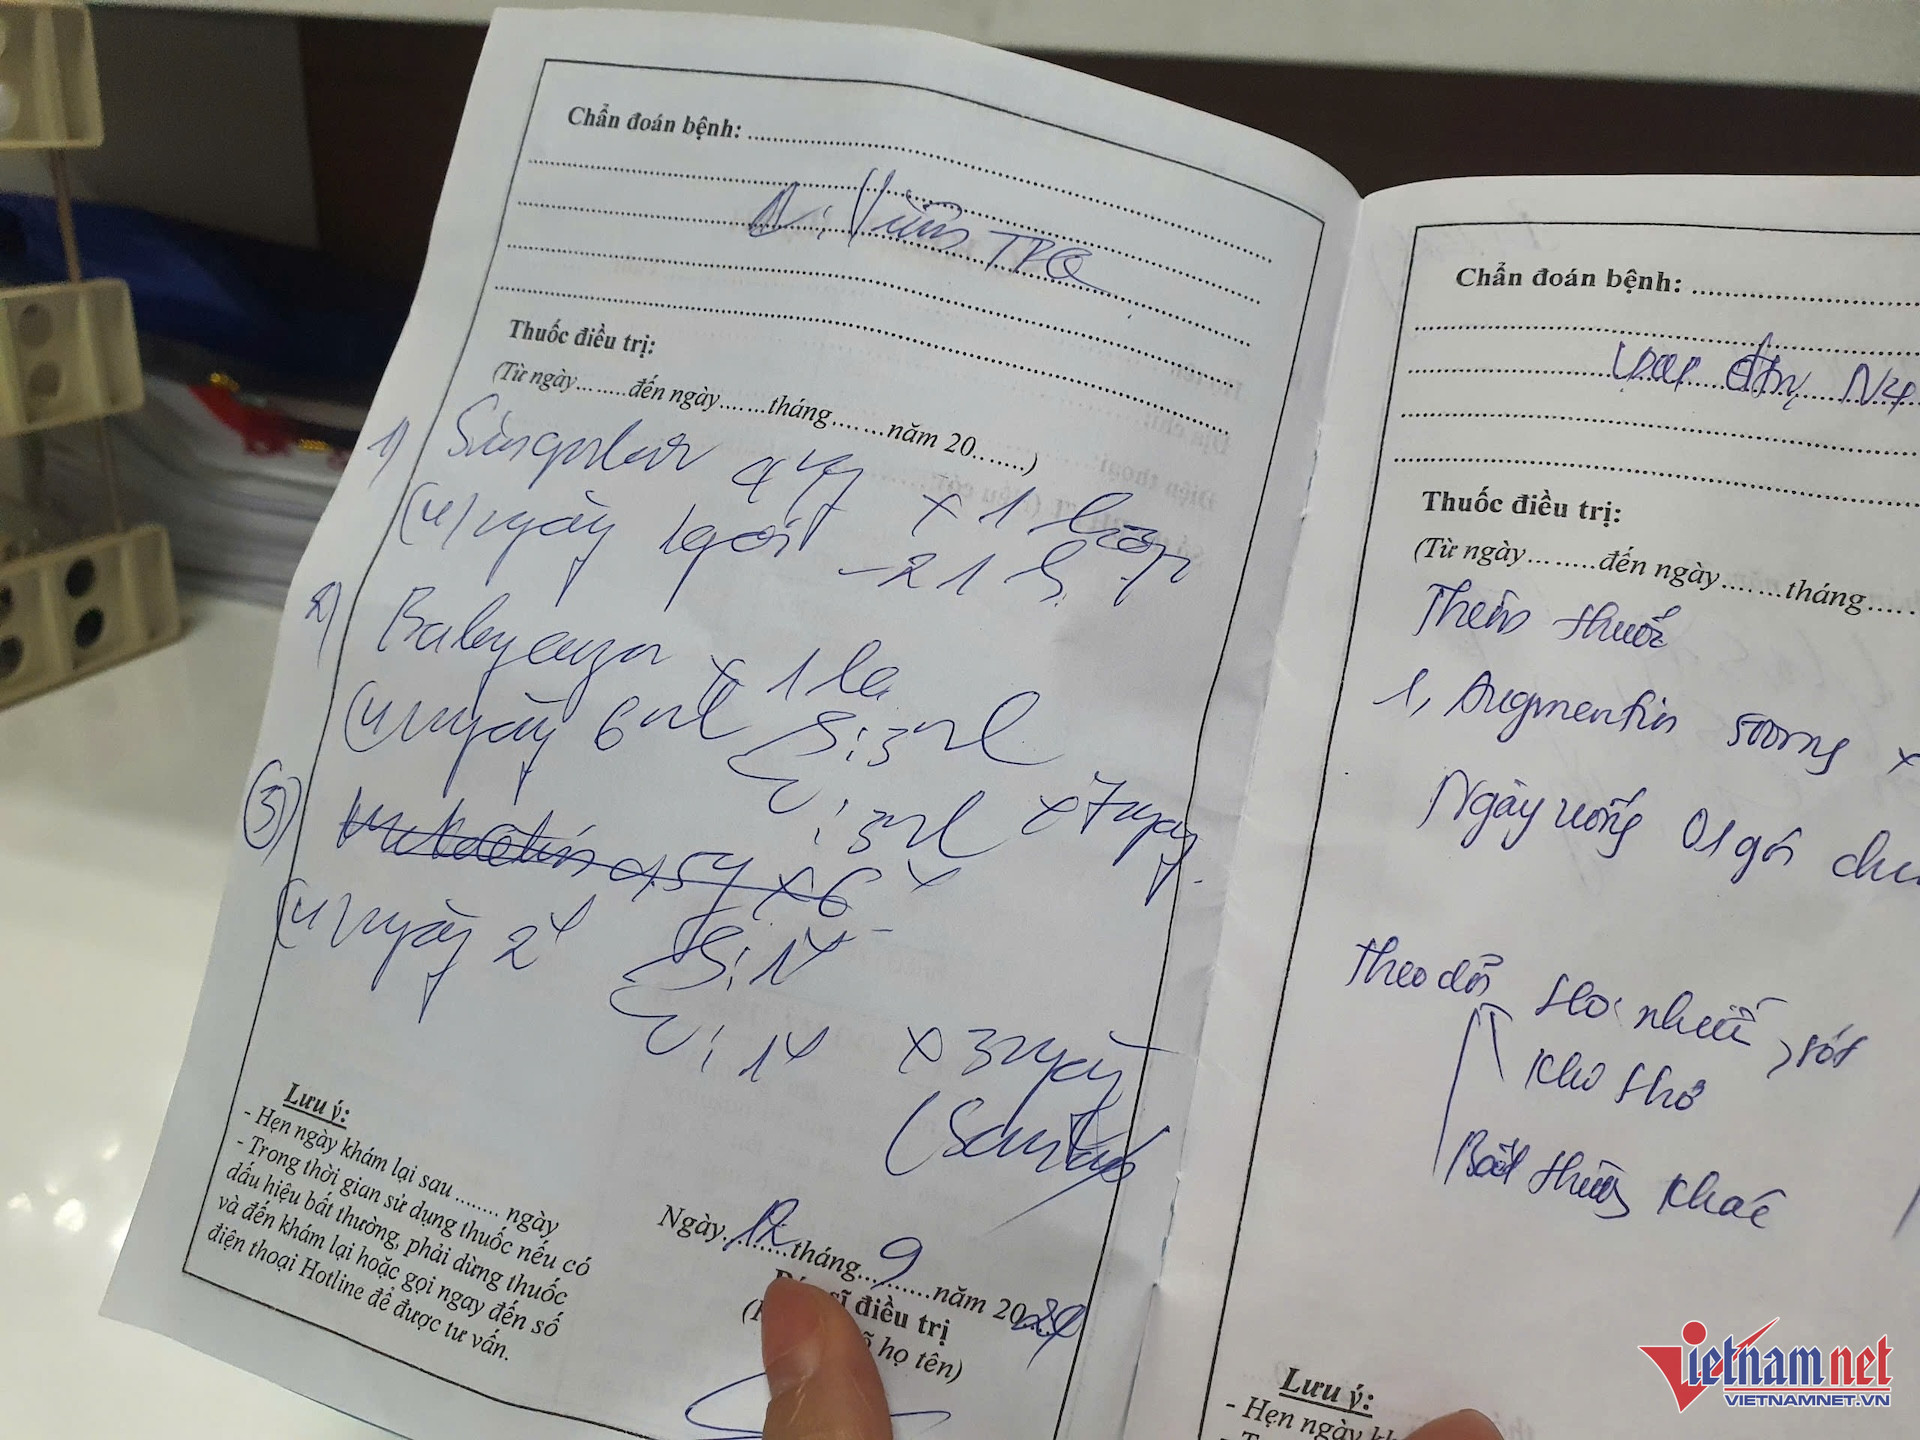 Chẩn đoán bệnh:
Viêm TPQ
Thuốc điều trị:
(Từ ngày........đến ngày........tháng........năm 20........)
1) Singulair 4mg x 1 hộp
(u) ngày 1 gói - 21 h
2) x 1 lọ
(u) ngày 6ml S: 3ml
C: 3ml x 7 ngày
(3)
(u) ngày 2 S: 1
C: 1 x 3 ngày
(sau
Lưu ý:
- Hẹn ngày khám lại sau ........ ngày
- Trong thời gian sử dụng thuốc nếu có
dấu hiệu bất thường, phải dừng thuốc
và đến khám lại hoặc gọi ngay đến số
điện thoại Hotline để được tư vấn.
Ngày 12 tháng 9 năm 2024
sĩ điều trị
họ tên)
Chẩn đoán bệnh:
Thuốc điều trị:
(Từ ngày........đến ngày........tháng
Thêm thuốc
1, Augmentin 500mg x
Ngày uống 01 gói
Theo dõi Ho nhiều, sốt
Khó thở
Bất thường khác
Lưu ý:
- Hẹn ngày
Vietnamnet
VIETNAMNET.VN